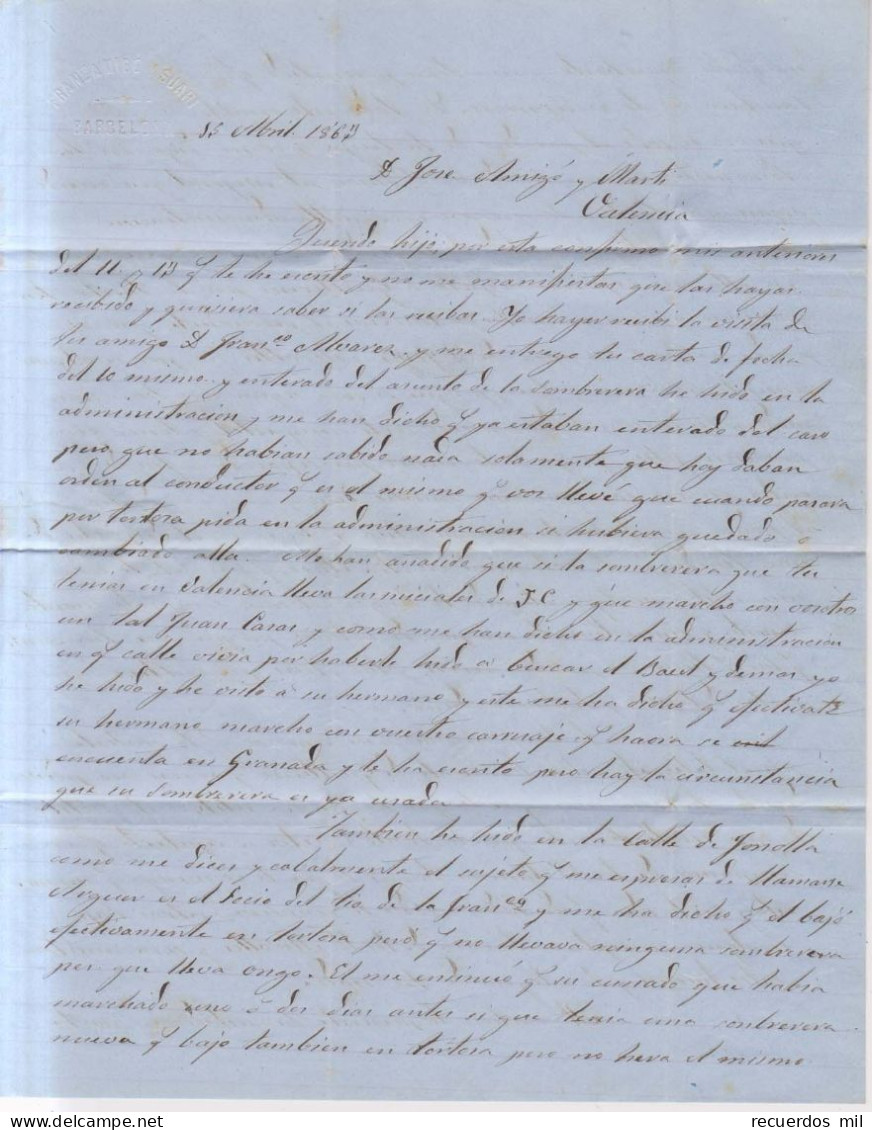 15 Abril 1863
D Jose Amigó y Marti
Valencia
Querido hijo por esta confirmo mis anteriores
del 11 y 13 q te he escrito y no me manifiestas que las hayas
recibido y quisiera saber si las recibes. Yo hayer recibi la visita de
tu amigo D Franco Alvarez y me entrego tu carta de fecha
del 10 mismo y enterado del asunto de la sombrerera he hido en la
administracion y me han dicho q ya estaban enterado del caso
pero que no habian sabido nada solamente que hoy daban
orden al conductor q es el mismo q vos llevé que cuando pasara
por tortosa pida en la administracion si hubiera quedado ó
cambiado alla. Me han añadido que si la sombrerera que tu
tenias en Valencia lleva las iniciales de J C y que marcho con vosotros
un tal Juan Casas y como me han dicho en la administracion
en q calle vivia por haberle hido á buscar el Baul y demas yo
he hido y he visto á su hermano y este me ha dicho q efectivate
su hermano marcho con vuestro carruaje q haora se
encuenta en Granada y le ha escrito pero hay la circunstancia
que su sombrerera es ya usada
Tambien he hido en la Calle de
como me dices y cabalmente el sujeto q me espresas de llamarse
es el Socio del tio de la Franca y me ha dicho q el bajó
efectivamente en tortosa pero q no llevava ninguna sombrerera
por que lleva ongo. El me q su cunado que habia
marchado uno ó dos dias antes si que tenia una sonbrerera
nueva q bajo tambien en tortosa pero no heva el mismo
recuerdos mil